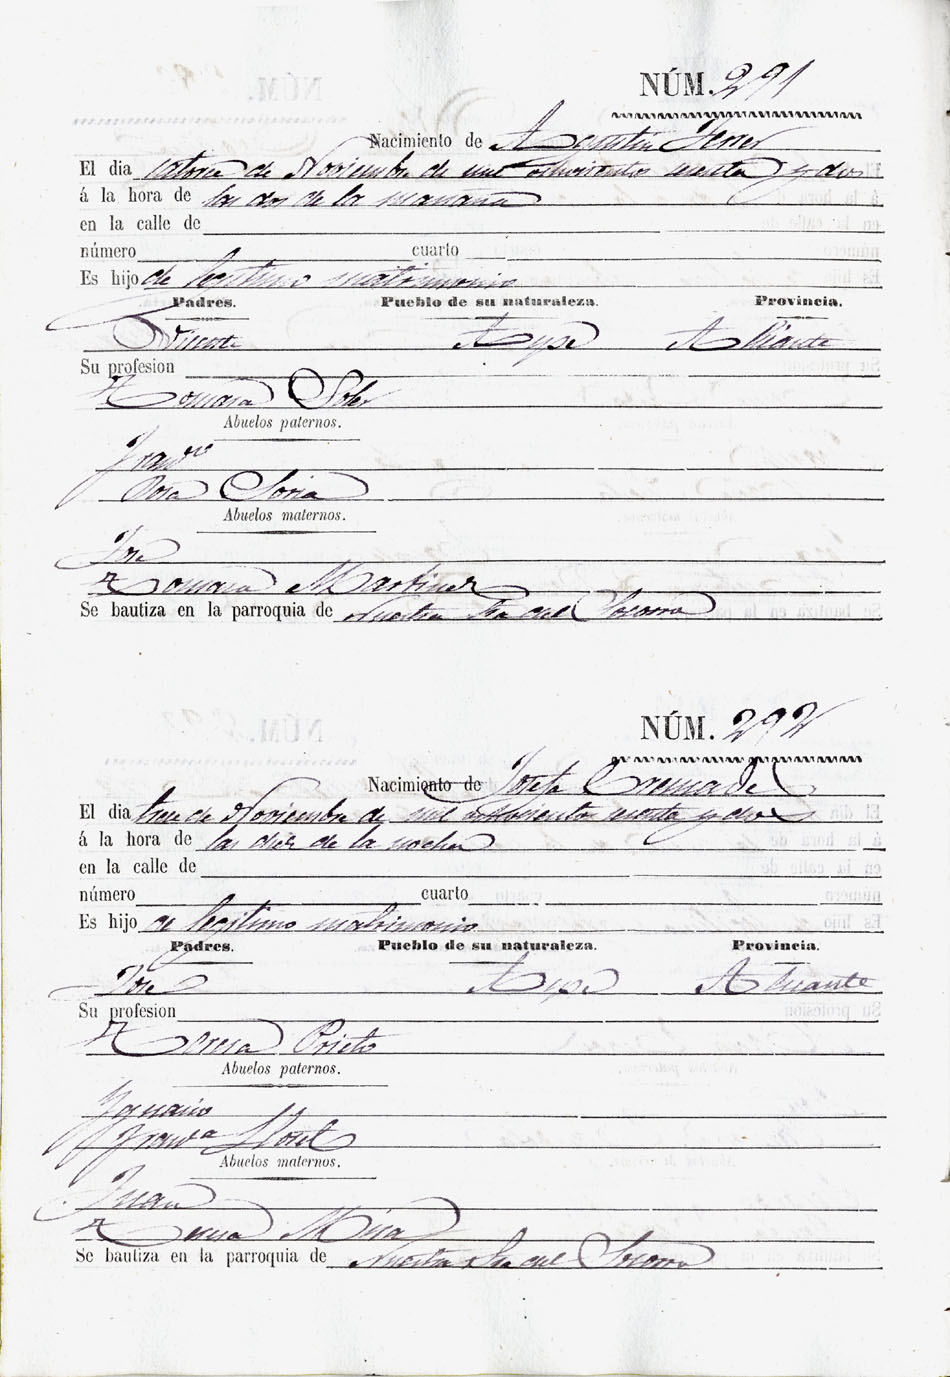 NÚM. 291
Nacimiento de Agustin Ferrer
El dia catorce de Noviembre de mil ochocientos sesenta y dos
á la hora de las dos de la mañana
en la calle de
número cuarto
Es hijo de legitimo matrimonio
Padres. Pueblo de su naturaleza. Provincia.
Vicente Aspe Alicante
Su profesion
Tomasa Soler
Abuelos paternos.
Franco
Rosa Soria
Abuelos maternos.
Jose
Tomasa Martinez
Se bautiza en la parroquia de Nuestra Sra del Socorro
NÚM. 292
Nacimiento de Josefa Cremades
El dia trece de Noviembre de mil ochocientos sesenta y dos
á la hora de las diez de la noche
en la calle de
número cuarto
Es hijo de legitimo matrimonio
Padres. Pueblo de su naturaleza. Provincia.
Jose Aspe Alicante
Su profesion
Teresa Prieto
Abuelos paternos.
Ygnacio
Franca
Abuelos maternos.
Juan
Teresa Mira
Se bautiza en la parroquia de Nuestra Sra del Socorro